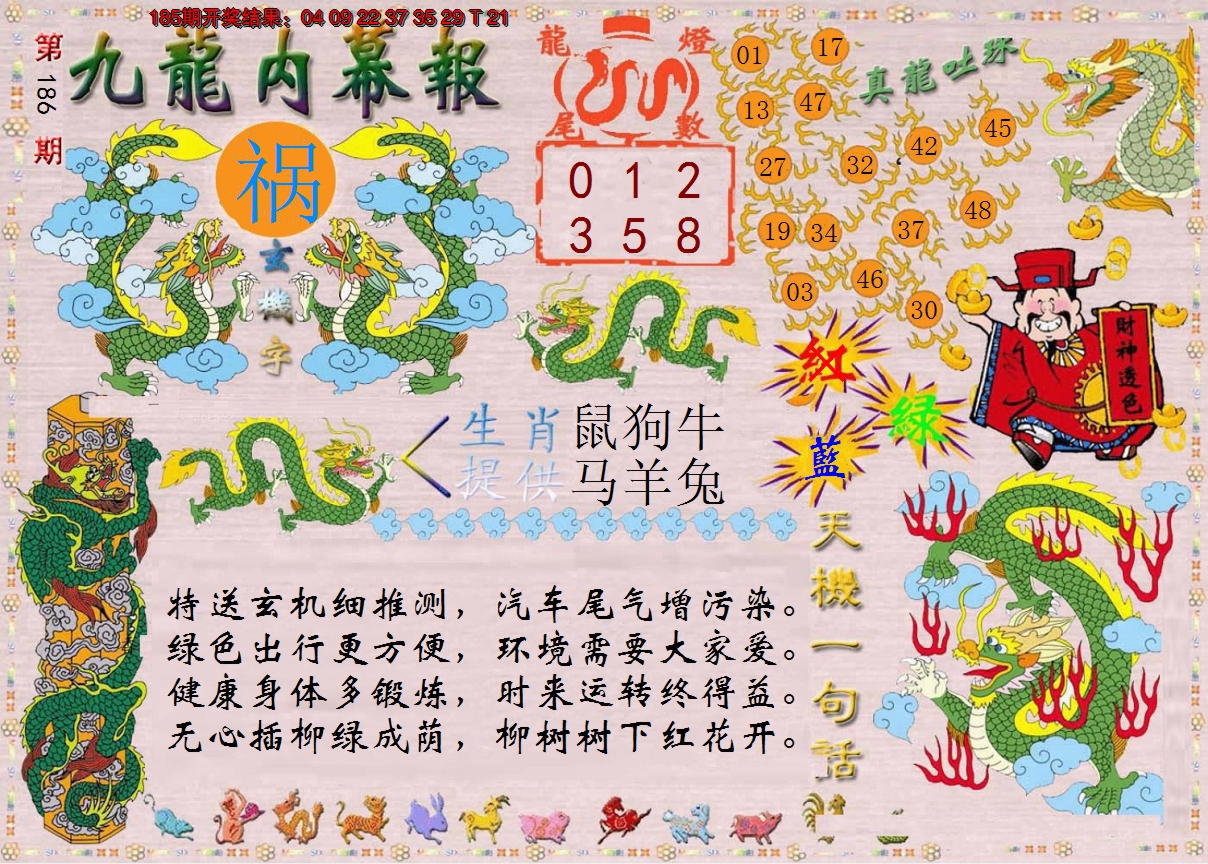 185期开奖结果：04 09 22 37 35 29 T 21
第186期
九龍内幕報
祸
玄機字
龍燈
尾數
0 1 2
3 5 8
真龍吐珠
01 17
13 47
27 32 42 45
19 34 37 48
03 46 30
財神透色
紅
綠
藍
生肖 鼠狗牛
提供 马羊兔
天機一句話
特送玄机细推测，汽车尾气增污染。
绿色出行更方便，环境需要大家爱。
健康身体多锻炼，时来运转终得益。
无心插柳绿成荫，柳树树下红花开。